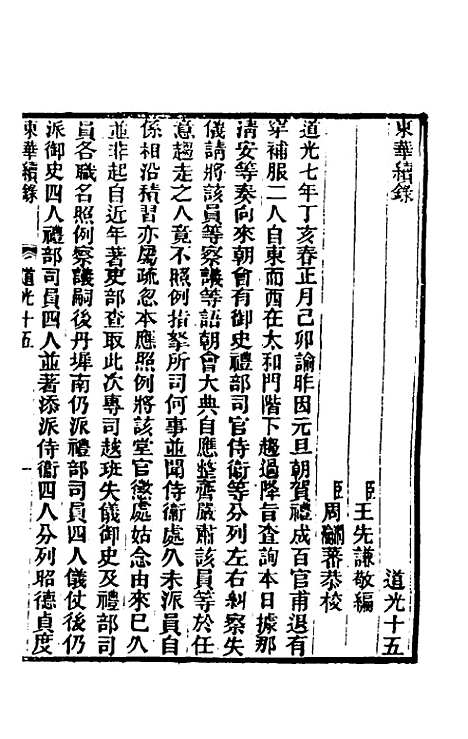 東華續錄
道光十五
臣王先謙敬編
臣周瀹蕃恭校
道光七年丁亥春正月己卯諭昨因元旦朝賀禮成百官甫退有
穿補服二人自東而西在太和門階下趨過降旨查詢本日據那
清安等奏向來朝會有御史禮部司官侍衞等分列左右糾察失
儀請將該員等察議等語朝會大典自應整齊嚴肅該員等於任
意趨走之人竟不照例指拏所司何事並聞侍衞處久未派員自
係相沿積習亦屬疏忽本應照例將該堂官懲處姑念由來已久
並非起自近年著吏部查取此次專司越班失儀御史及禮部司
員各職名照例察議嗣後丹墀南仍派禮部司員四人儀仗後仍
派御史四人禮部司員四人並著添派侍衞四人分列昭德貞度
東華續錄
道光十五
一